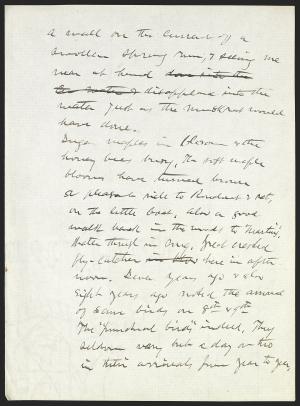 a wall on the current of a
swollen spring run, & seeing me
near at hand down into the
water & disappeared into the
water just as the muskrat would
have done.
Sugar maples in bloom & the
honey bees busy. The soft maple
blooms have turned brown
a pleasant ride to Rondout & ret,
on the little boat, also a good
walk back in the woods to "Martin"
Hermit thrush in song. Great crested
fly-catcher in this here in after
noon. Seven years ago & also
Eight years ago noted the arrival
of same birds on 8th & 9th
The "punctual birds" indeed, They
seldom vary but a day or two
in their arrivals from year to year,